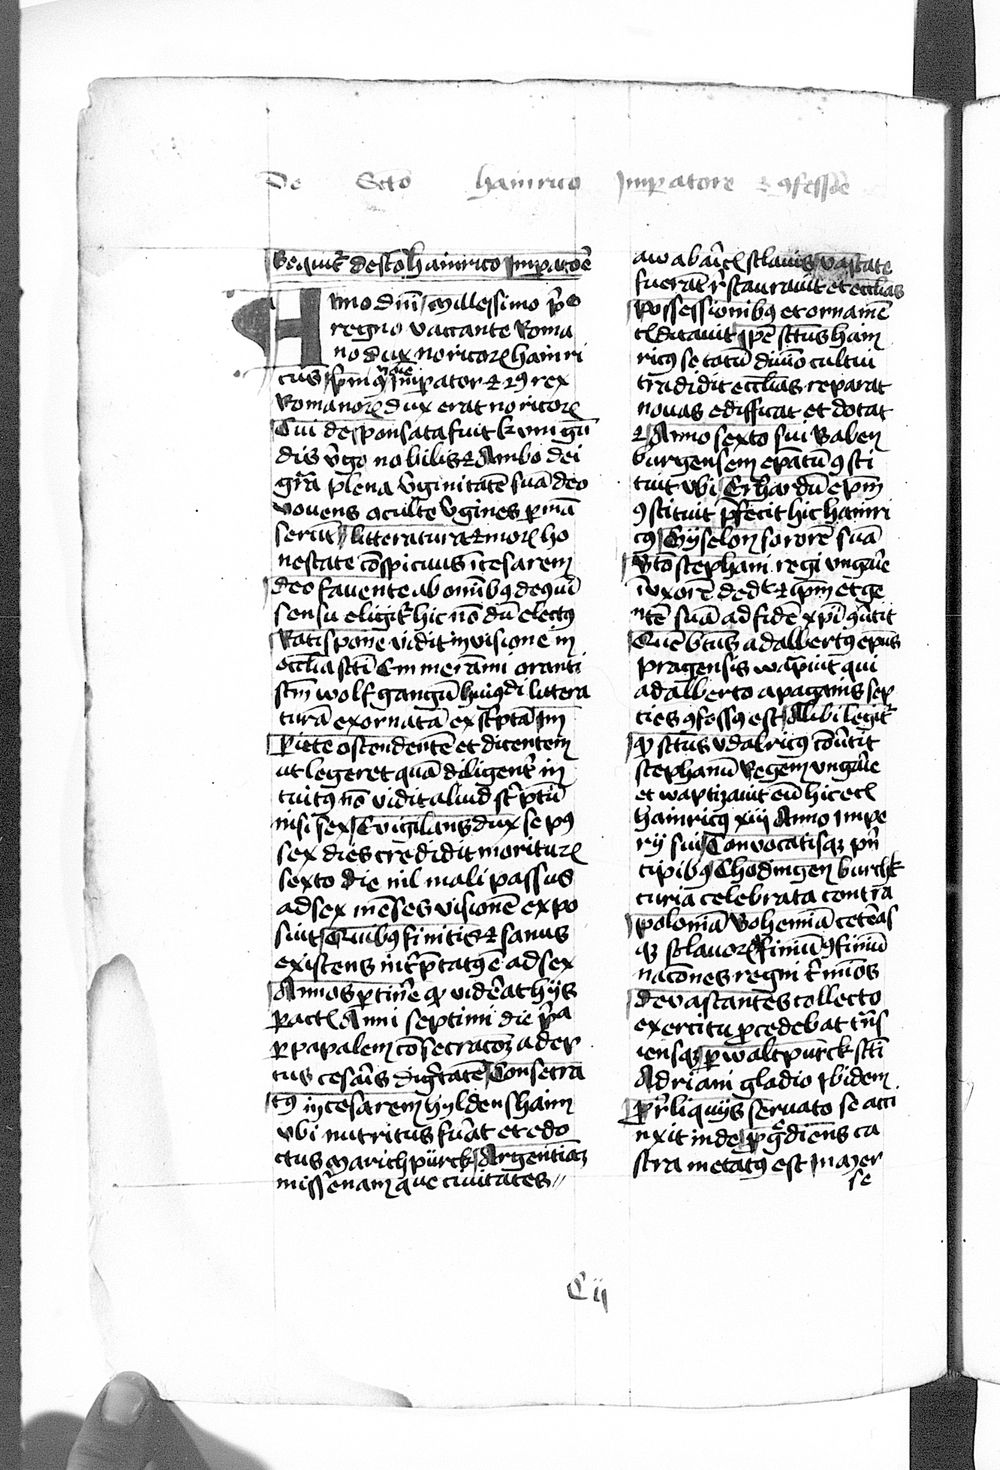 De Scto hainrico Imperatore et confessore
Sequitur de scto hainrico Imperatore
Anno dni Millessimo primo
regno vaccante Roma
no dux noricorum hainri
cus primus imperator et rex
Romanorum dux erat noricorum
Cui desponsata fuit kunigun
dis virgo nobilis et Ambo dei
gra plena virginitatem suam deo
vovens oculte virgines perman
serunt litteratura et morum ho
nestate conspicuus in cesarem
deo favente ab omnibus
sensu eligitur hic nondum electus
Ratispone vidit in visione in
ecclia scti Emmerammi oranti
sctm wolfgangum littera
turam exornatam et scriptam Im
Parietem ostendentem et dicentem
ut legeret quam diligenter in
tuitus non vidit aliud scriptum
nisi sex Evigilans dux se post
sex dies credidit moriturum
sexto die nil mali passus
ad sex menses visionem expo
suit Quibus finitis et sanus
existens ad sex
Annos pertinere quod viderat hiis
peractis Anni septimi die prima
per papalem consecracionem adep
tus cesaris dignitatem Consecra
tus in cesarem hyldenshaim
ubi nutritus fuerat et edo
ctus Marichpurck Argentinam
misnenam que civitates
a sclavis vastate
fuerant restauravit et ecclias
Possessionibus et ornamen
tis ditavit ipse sctus hain
ricus se totum divino cultui
tradidit ecclias reparat
novas edifficat et dotat
et Anno sexto sui Baben
burgensem epatum consti
tuit ubi Erhardum epm
constituit prefecit hic hainri
cus Gyselon sororem suam
scto stephani regi ungarie
in uxorem dedit et ipm et gen
tem suam ad fidem xpi convertit
Quem btus adalbertus epus
pragensis wapt​ivit qui
adalberto a paganis sep
ties confossus est Alibi legitur
quod sctus udalricus convertit
stephanum Regem ungarie
et waptizavit eum hic etc
hainricus xiij Anno Impe
rij sui Convocatisque prin
cipibus Chodingen burchk
curia celebrata contra
poloniam Bohemiam ceteras
que sclavorum finium confinium
naciones regni terminos
devastantes collecto
exercitu procedebat trans
iensque per waltpurck scti
Adriani gladio Ibidem
Pro reliquiis servato se acci
nxit inde progrediens ca
stra metatus est In Mer
se
C ij